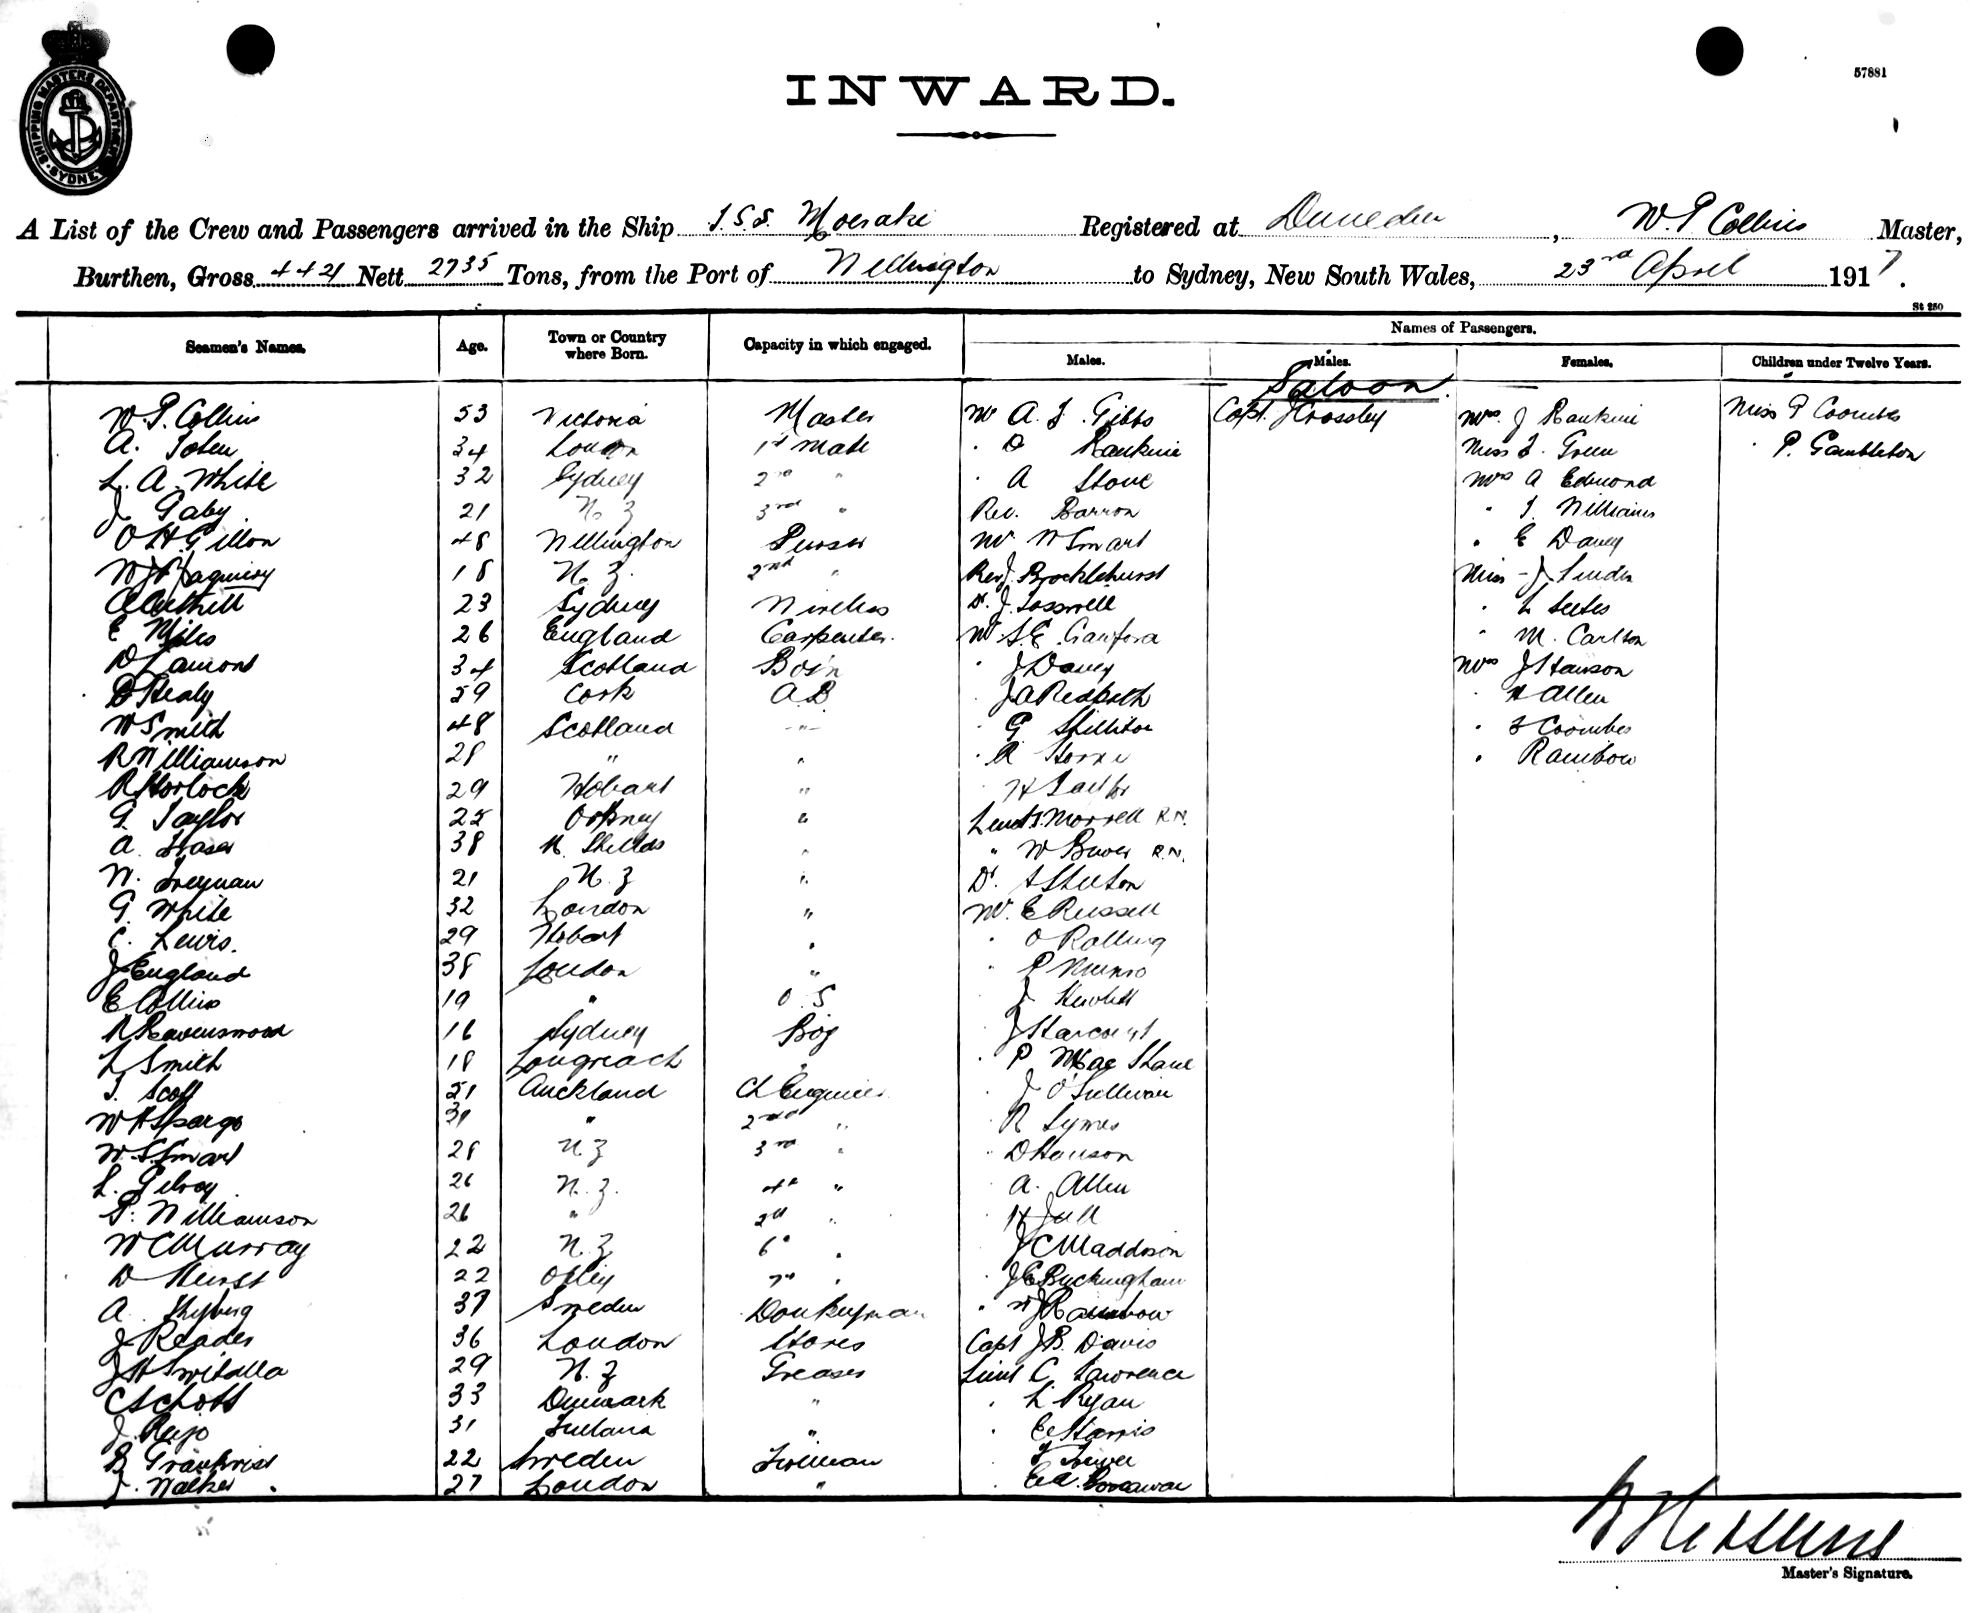 57881
INWARD.
SHIPPING MASTERS DEPARTMENT SYDNEY
A List of the Crew and Passengers arrived in the Ship T.S.S. Moeraki Registered at Dunedin, W. P Collins Master,
Burthen, Gross 4421 Nett 2735 Tons, from the Port of Wellington to Sydney, New South Wales, 23rd April 1917.
St 250
Names of Passengers.
Seamen's Names. Age. Town or Country where Born. Capacity in which engaged. Males. Males. Females. Children under Twelve Years.
Saloon.
W. P. Collins 53 Victoria Master Mr A. J. Gibbs Capt. J Crossley Mrs J Rankine Miss P Coombes
A. 34 London 1st Mate " D Rankine Miss F. Green " P. Gambleton
L. A. White 32 Sydney 2nd " " A Stove Mrs A Edmond
J Gaby 21 N. Z 3rd " Rev. Barron " J. Williams
O H Gillon 48 Wellington Purser Mr W Smart " E Davey
18 N. Z. 2nd " Rev J. Brocklehurst Miss J
23 Sydney Wireless Dr. J. " L
E Miles 26 England Carpenter Mr S. E. Crawford " M. Carlson
D Lamont 34 Scotland Bos'n " J Davey Mrs J Hawson
D Healy 59 Cork A B J A Redpath " H Allen
W Smith 48 Scotland " " G Shillitoe " F Coombes
R Williamson 28 " " " R Horne " Rainbow
R Horlock 29 Hobart " H
G. Taylor 25 Orkney " Lieut J. Morrell R.N.
A. Fraser 38 N. Shields " " W R.N.
W. 21 N. Z " Dr.
G. White 32 London " Mr. E Russell
C. Lewis. 29 Hobart " " O Rolling
J England 38 London " " P Munro
E Collins 19 " O. S J Hewlett
R Ravenswood 16 Sydney Boy J Harcourt
L Smith 18 Longreach " " P MacShane
J. Scott 51 Auckland Ch Engineer " J O'Sullivan
W H Spargo 31 " 2nd " R Symes
W. S. Smart 28 N Z 3rd " " D Hanson
L. Gilroy 26 N. Z. 4th " " A. Allen
P. Williamson 26 " " H Jull
W C Murray 22 N. Z 6th " J C Maddison
D Hurst 22 Otley 7th " " J E Buckingham
A. 37 Sweden Donkeyman " W J Rainbow
J Reader 36 London Stores Capt J. B. Davis
J H 29 N. Z Greaser Lieut C. Lawrence
C Schott 33 Denmark " " L Ryan
J. 31 " " E Harris
B 22 Sweden Fireman "
J. Walker 27 London " "
Master's Signature.